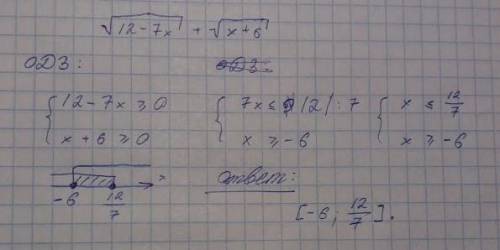 √12-7x + √x+6
ОДЗ:
{ 12-7x ≥ 0
x+6 ≥ 0
{ 7x ≤ 12 | :7
x ≥ -6
{ x ≤ 12/7
x ≥ -6
-6 12/7 x
ответ:
[-6; 12/7].